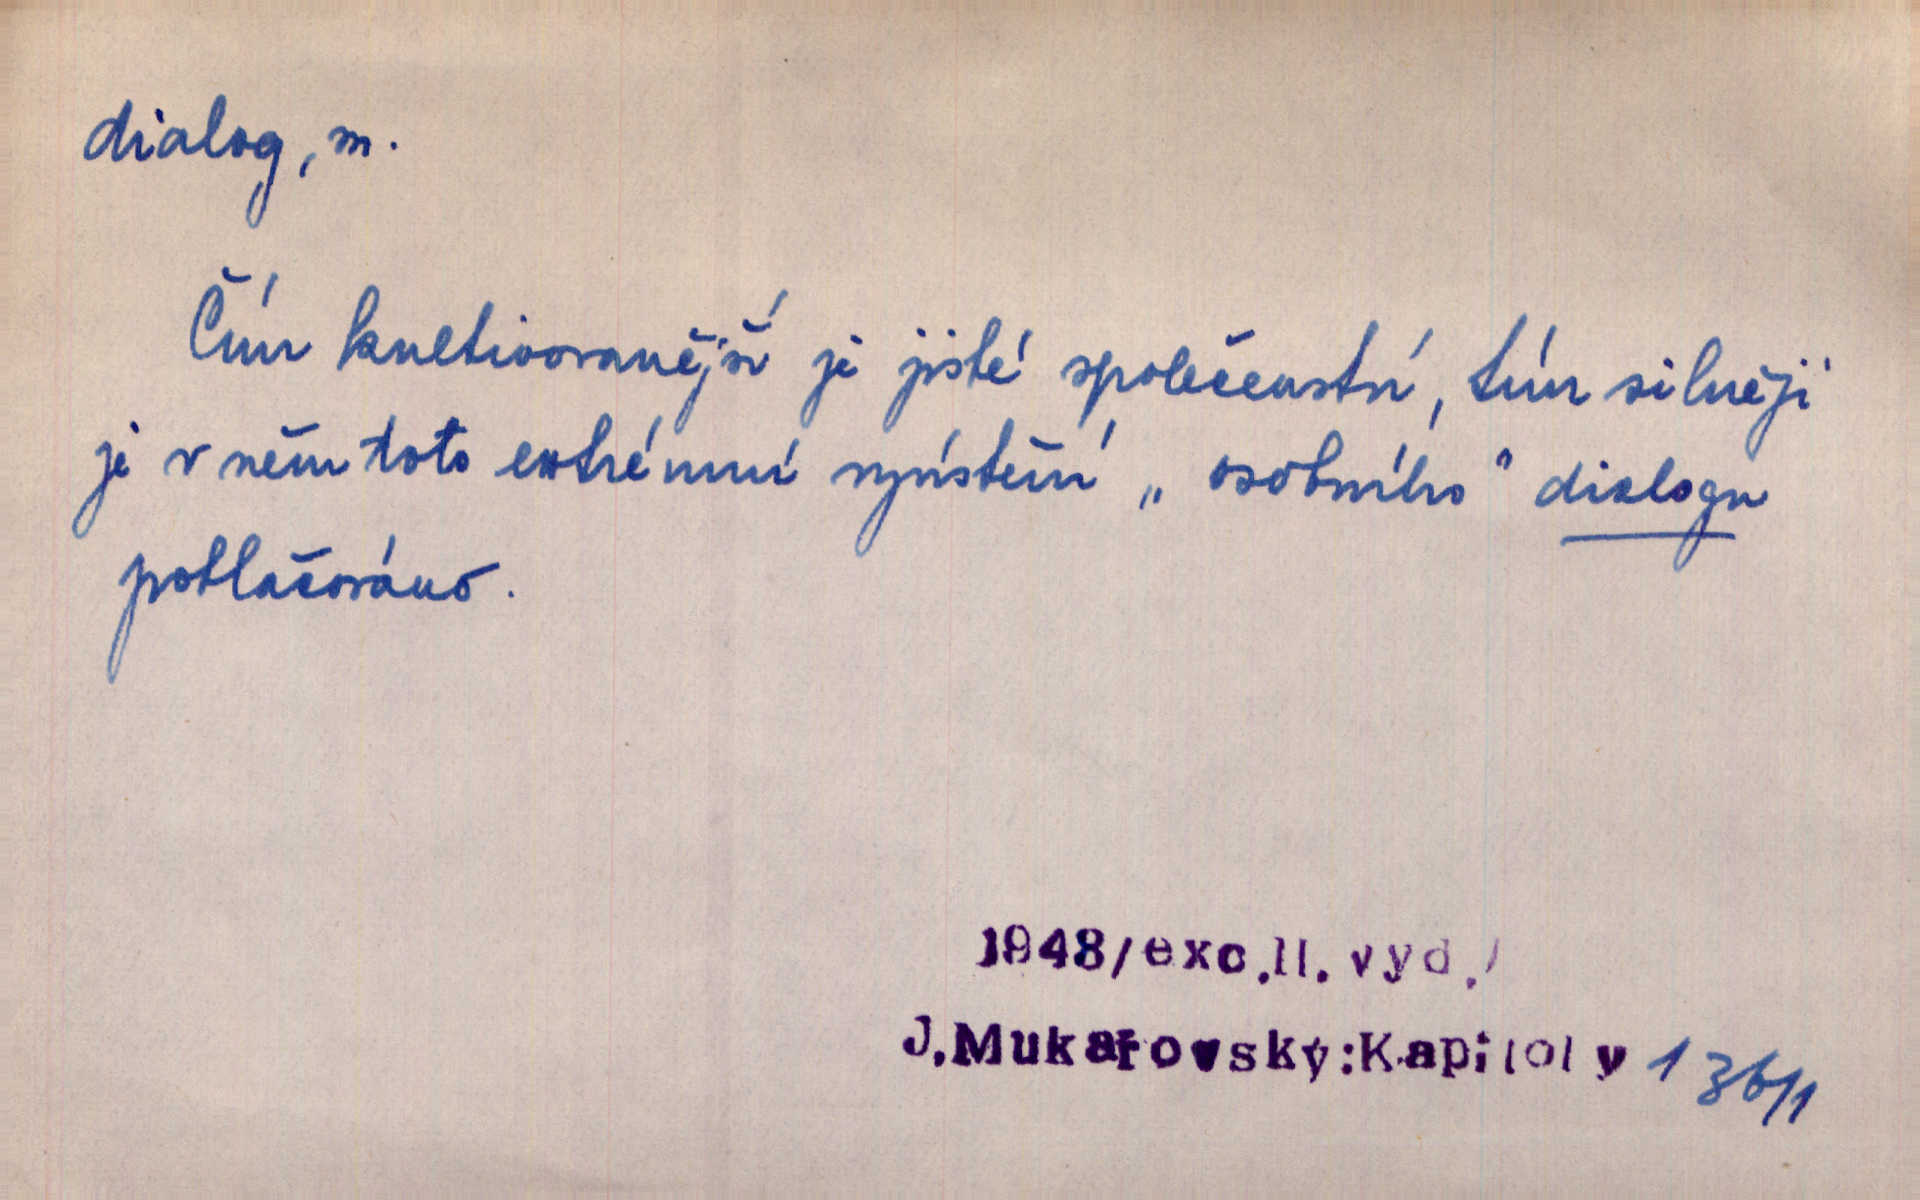 dialog, m.
Čím kultivovanější je jisté společenství, tím silněji
je v něm toto extrémní vyústění „osobního“ dialogu
potlačováno.
1948/exc.II. vyd./
J.Mukařovský:Kapitoly 136/1